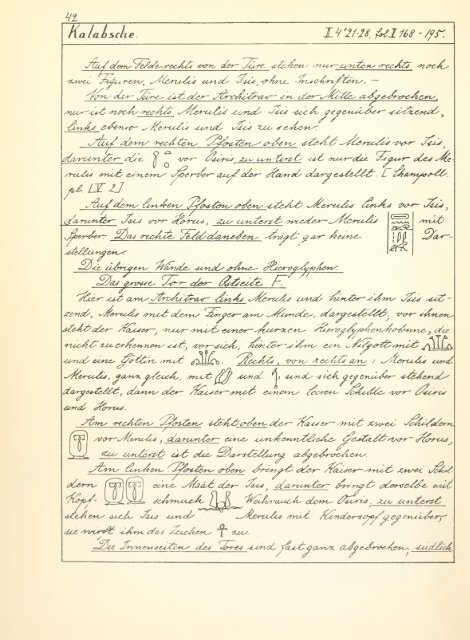 42
Kalabsche. II.4°21-28, fol. I 168-195.
Auf dem Felde rechts von der Türe stehen nur unten rechts noch
zwei Figuren, Merulis und Isis, ohne Inschriften. –
Von der Türe ist der Architrav in der Mitte abgebrochen,
nur ist noch rechts Merulis und Isis sich gegenüber sitzend,
links ebenso Merulis und Isis zu sehen
Auf dem rechten Pfosten oben steht Merulis vor Isis,
darunter die vor Osiris, zu unterst ist nur die Figur des Me-
rulis mit einem Sperber auf der Hand dargestellt [Champoll.
pl. LV. 2]
Auf dem linken Pfosten oben steht Merulis links vor Isis,
darunter Isis vor Horus, zu unterst wieder Merulis mit
Sperber. Das rechte Feld daneben trägt gar keine Dar-
stellungen.
Die übrigen Wände sind ohne Hieroglyphen.
Das grosse Tor der Ostseite F.
Hier ist am Architrav links Merulis und hinter ihm Isis sit-
zend, Merulis mit dem Finger am Munde, dargestellt, vor ihnen
steht der Kaiser, nur mit einer kurzen Hieroglyphenkolumne, die
nicht zu erkennen ist, vor sich, hinter ihm ein Nilgott mit
und eine Göttin mit Rechts, von rechts an: Merulis und
Merulis, ganz gleich, mit und sind sich gegenüber stehend
dargestellt, dann der Kaiser mit einem leeren Schilde vor Osiris
und Horus.
Am rechten Pfosten steht oben der Kaiser mit zwei Schildern
vor Merulis, darunter eine unkenntliche Gestalt vor Horus,
zu unterst ist die Darstellung abgebrochen.
Am linken Pfosten oben bringt der Kaiser mit zwei Schil-
dern eine Maat der Isis, darunter bringt derselbe mit
Kopf- schmuck Weihrauch dem Osiris, zu unterst
stehen sich Isis und Merulis mit Kinderzopf gegenüber,
sie wirft ihm das Zeichen zu.
Die Innenseiten des Tores sind fast ganz abgebrochen, südlich